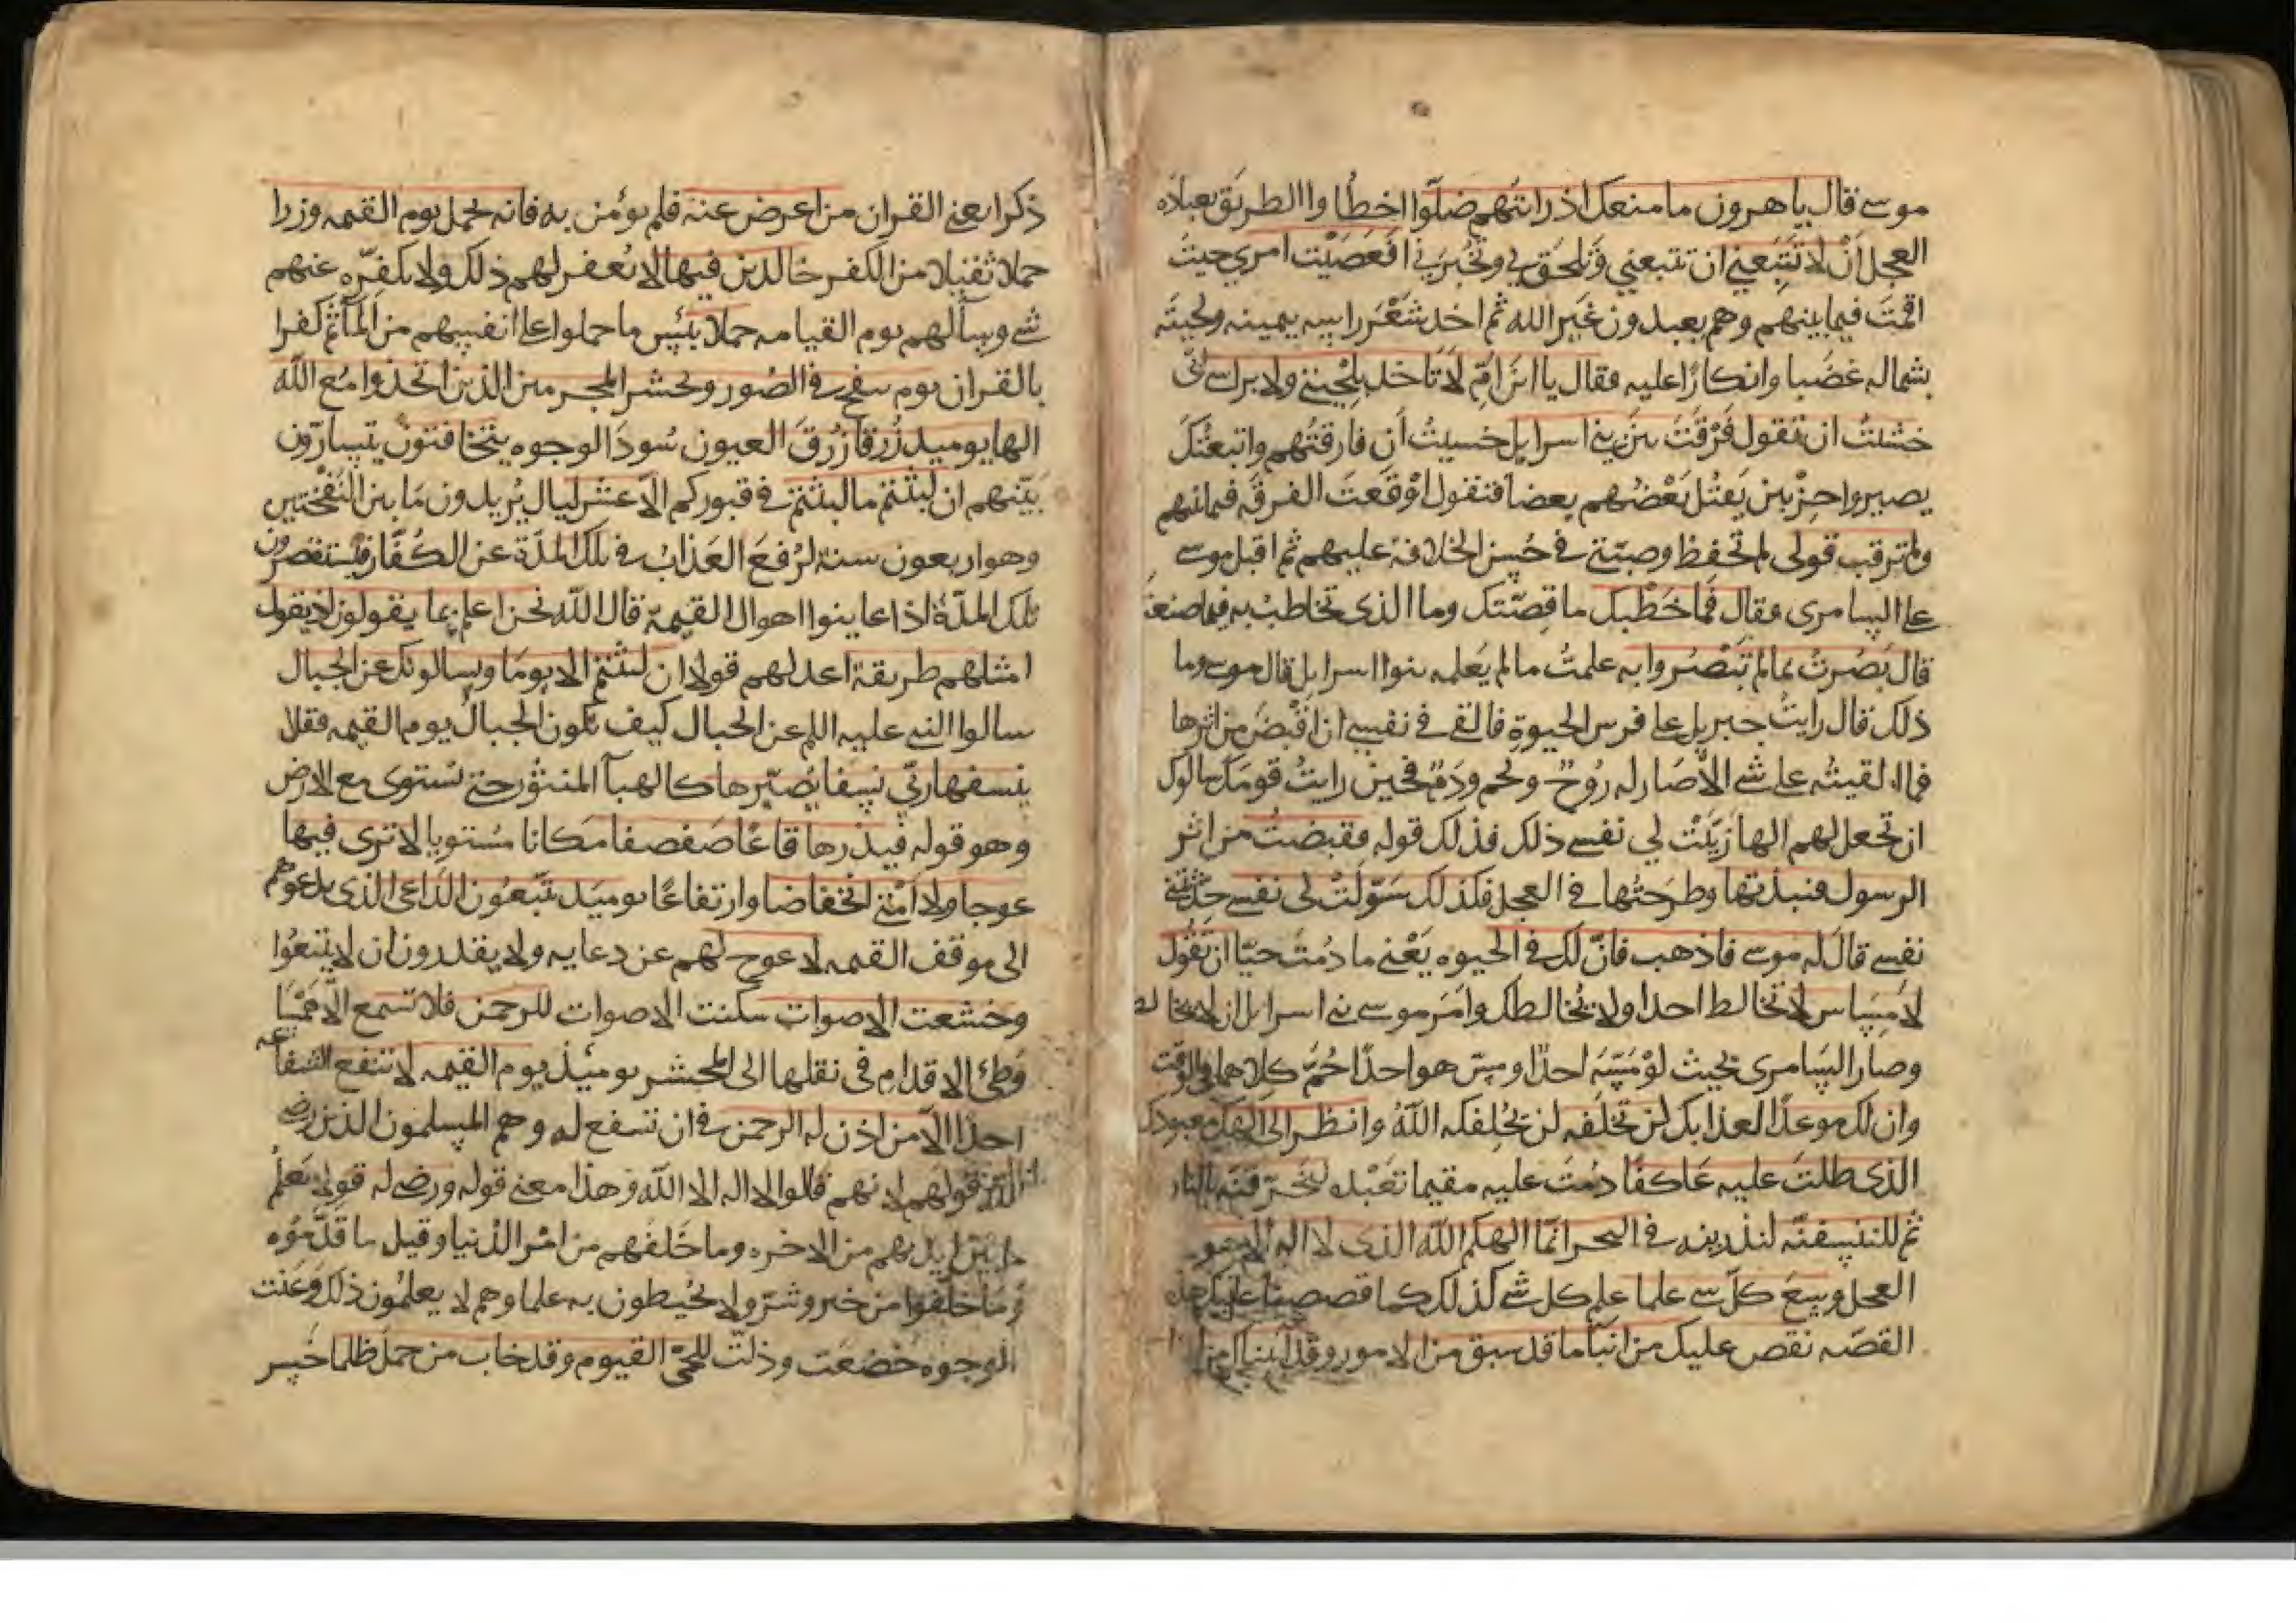 موسى قال يا هرون ما منعك اذ رايتهم ضلوا اخطاوا الطريق بعبادة
العجل أن لا تتبعني ان تتبعني وتلحق بي وتخبرني افعصيت امري حيث
اقمت فيما بينهم وهم يعبدون غير الله ثم اخذ شعر راسه بيمينه ولحيته
بشماله غضبا وانكارا عليه فقال يا ابن ام لا تاخذ بلحيتي ولا براسي اني
خشيت ان تقول فرقت بين بني اسرايل خشيت ان فارقتهم واتبعتك
يصيروا حزبين يقتل بعضهم بعضا فتقول اوقعت الفرقه فيما بينهم
ولم ترقب قولي لم تحفظ وصيتي في حسن الخلافة عليهم ثم اقبل موسى
على السامرى وقال فما خطبك ما قصتك وما الذى تخاطب به فيما صنعت
قال بصرت بما لم تبصروا به علمت ما لم يعلمه بنوا اسرايل قال موسى وما
ذلك قال رايت جبريل على فرس الحيوة فالقى في نفسي ان اقبض من اثرها
فما القيته على شى الا صار له روح ولحم ودم فحين رايت قومك سالوك
ان تجعل لهم الها زينت لي نفسي ذلك فذلك قوله فقبضت من اثر
الرسول فنبذتها وطرحتها في العجل فكذلك سولت لى نفسي حدثتني
نفسي قال له موسى فاذهب فان لك في الحيوه يعني ما دمت حيا ان تقول
لا مساس لا تخالط احدا ولا يخالطك وامر موسى بني اسرايل ان لا يخالطـ
وصار السامرى بحيث لو مسه احدا ومس هو احدا حم كلاهما في الوقت
وان لك موعدا لعذابك لن تخلفه لن يخلفكه الله وانظر الى الهك معبودك
الذى ظلت عليه عاكفا دمت عليه مقيما تعبده لنحرقنه بالنار
ثم لننسفنه لنذرينه في البحر انما الهكم الله الذى لا اله الا هو
العجل وسع كل شى علما علم كل شى كذلك كما قصصنا عليك هذه
القصه نقص عليك من انبا ما قد سبق من الامور وقد اتيناك من لدنا
ذكرا يعني القران من اعرض عنه فلم يؤمن به فانه يحمل يوم القيمه وزرا
حملا ثقيلا من الكفر خالدين فيها لا يغفر لهم ذلك ولا يكفره عنهم
شى وسا لهم يوم القيامه حملا بئس ما حملوا على انفسهم من المآثم كفرا
بالقران يوم ينفخ في الصور ونحشر المجرمين الذين اتخذوا مع الله
الها يوميذ زرقا زرق العيون سود الوجوه يتخافتون يتسارون
بينهم ان لبثتم ما لبثتم في قبوركم الا عشر ليال يريدون ما بين النفختين
وهو اربعون سنة لرفع العذاب في تلك المدة عن الكفار فيستقصرون
تلك المدة اذا عاينوا اهوال القيمة قال الله نحن اعلم بما يقولون اذ يقول
امثلهم طريقة اعدلهم قولا ان لبثتم الا يوما ويسالونك عن الجبال
سالوا النبي عليه السلم عن الجبال كيف تكون الجبال يوم القيمه فقل
ينسفها ربي نسفا يصيرها كالهبآ المنثور حتى تستوى مع الارض
وهو قوله فيذرها قاعا صفصفا مكانا مستويا لا ترى فيها
عوجا ولا امتى انخفاضا وارتفاعا يوميذ يتبعون الداعى الذى يدعوهم
الى موقف القيمه لا عوج لهم عن دعايه ولا يقدرون ان لا يتبعوا
وخشعت الاصوات سكنت الاصوات للرحمن فلا تسمع الا همسا
وطئ الاقدام في نقلها الى المحشر يومئذ يوم القيمه لا تنفع الشفاعه
احدا الا من اذن له الرحمن في ان تشفع له وهم المسلمون الذين رضى
الله قولهم لانهم قالوا لا اله الا الله وهذا معنى قوله ورضى له قولا يعلم
ما بين ايديهم من الاخره وما خلفهم من امر الدنيا وقيل ما قدموه
وما خلفوا من خير وشر ولا يحيطون به علما وهم لا يعلمون ذلك وعنت
الوجوه خضعت وذلت للحى القيوم وقد خاب من حمل ظلما خسر